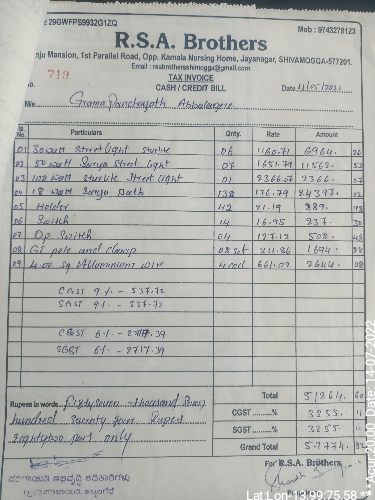 : 29GWFPS9932G1ZQ
Mob : 9743278123
R.S.A. Brothers
nju Mansion, 1st Parallel Road, Opp. Kamala Nursing Home, Jayanagar, SHIVAMOGGA-577201.
Email : rsabrothersshimogga@gmail.com
TAX INVOICE
No. 719 CASH / CREDIT BILL Date
M/s Grama Panchayath Abbalagere
Sl. No. Particulars Qnty. Rate Amount
01 30 watt Street light 06 1160.71 6964. 26
02 50 watt Surya Street light 07 1651.79 11562. 52
03 100 watt Street light 01 2366.07 2366. 07
04 18 watt Surya Bulb 138 176.79 24397. 02
05 Holder 42 21.19 889. 98
06 Switch 14 16.95 237. 30
07 Dp Switch 04 127.12 508. 48
08 GI pole and clamp 08 set 211.86 1694. 88
09 4.00 Sq. Alluminium wire 4 coil 661.02 2644. 08
CGST 9%. - 537.72
SGST 9%. - 537.72
CGST 6%. - 2717.39
SGST 6%. - 2717.39
Total 51264. 60
Rupees in words Fiftyseven thousand Seven
CGST ..........% 3255. 11
hundred Seventy four Rupees
SGST ..........% 3255. 11
eightytwo pais only
Grand Total 57774. 82
For R.S.A. Brothers
ಪಂಚಾಯತಿ ಅಭಿವೃದ್ಧಿ ಅಧಿಕಾರಿಗಳು
Lat Lon: 13.99,75.58
Date: 14-07-2022